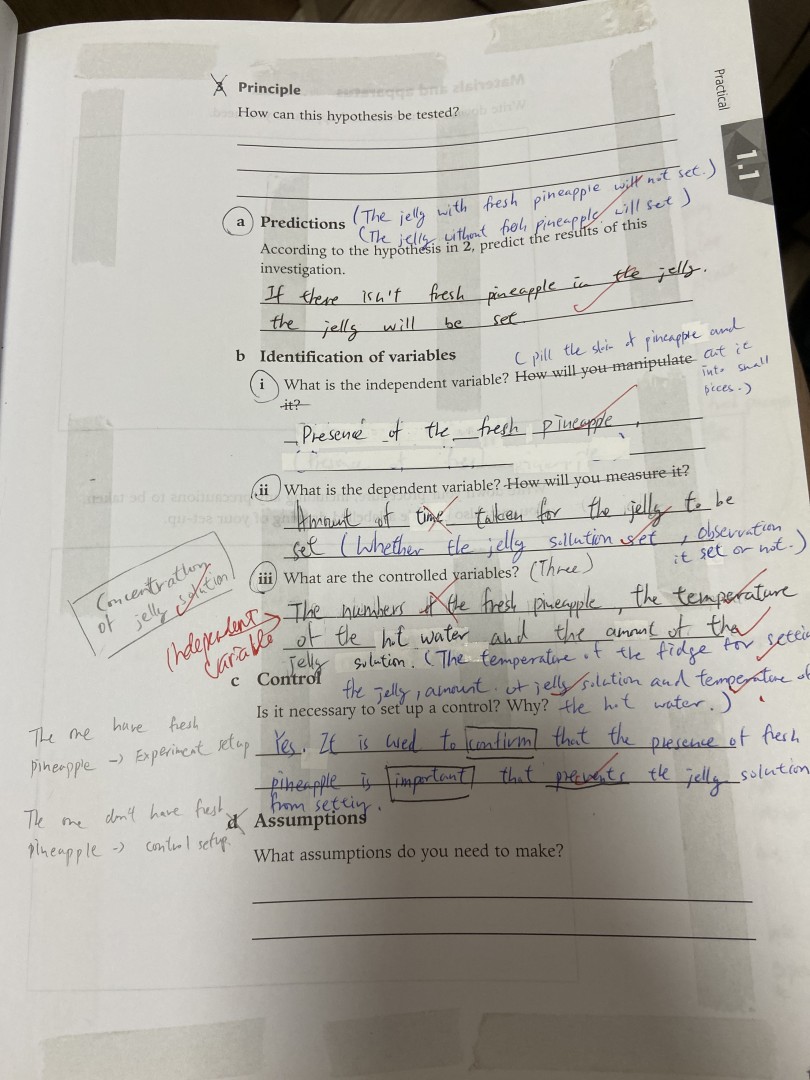 Practical
1.1
3 Principle
How can this hypothesis be tested?
a Predictions (The jelly with fresh pineapple will not set.)
(The jelly without fresh pineapple will set)
According to the hypothesis in 2, predict the results of this
investigation.
If there isn't fresh pineapple in the jelly.
the jelly will be set
b Identification of variables
( pill the skin of pineapple and
cut it
into small
pieces.)
i What is the independent variable? How will you manipulate
it?
Presence of the fresh pineapple
ii What is the dependent variable? How will you measure it?
Amount of time taken for the jelly to be
set (Whether the jelly sollution set, observation
it set or not.)
iii What are the controlled variables? (Three)
Concentration
of jelly solution
Independent
Variable
The numbers of the fresh pineapple, the temperature
of the hot water and the amount of the
jelly solution. (The temperature of the fidge for
the jelly, amount of jelly solution and temperature of
the hot water.)
c Control
Is it necessary to set up a control? Why?
The one have fresh
pineapple -> Experiment setup
Yes. It is used to confirm that the presence of fresh
pineapple is important that prevents the jelly solution
from setting.
The one don't have fresh
pineapple -> control setup.
d Assumptions
What assumptions do you need to make?